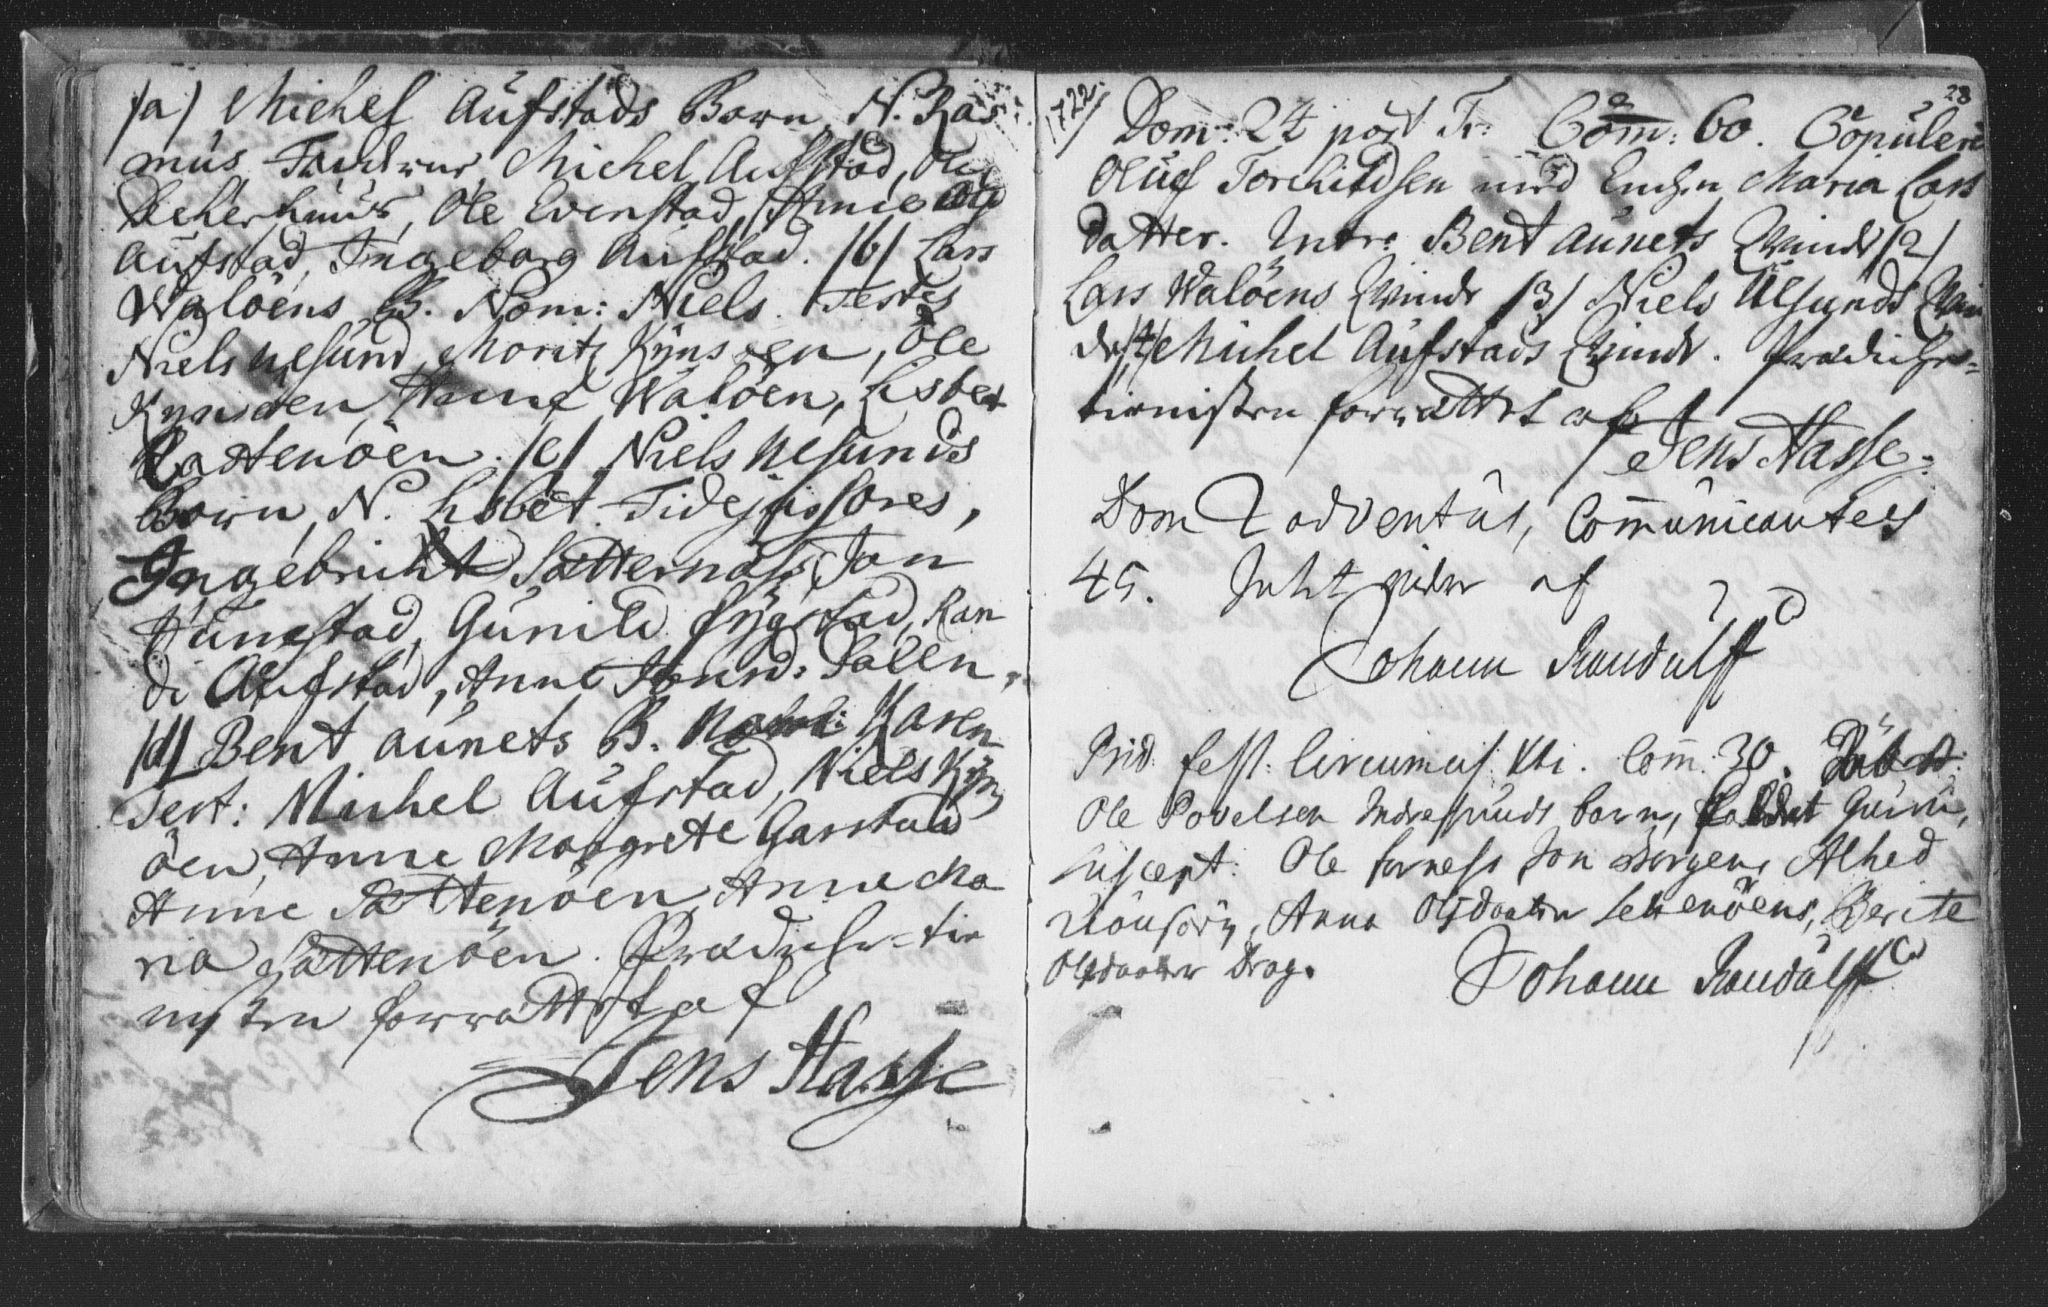 /a/ Michel Aufstads Barn N. Ras
mus, Faddrene, Michel Aufstad, Ole
Ole Evenstad, Anne
Aufstad, Ingeborg Aufstad. /b/ Lars
Waløens B. Nom: Niels. Testes
Niels Ulsund, Moritz Kÿnsøen, Ole
Kÿnsøen, Anne Waløen, Lisbet
Sattenøen. /c/ Niels Ulsunds
Barn, N. Lisbet. Fidejussores,
Ingebricht Satternæss, Jon
Aunestad, Gunild Rÿgstad, Ran
di Aufstad, Anne Amund: Salen,
/d/ Bent Aunets B. Nom: Karen
Test: Michel Aufstad, Niels Kÿn
øen, Anne Margrete Garstad
Anne Sattenøen, Anne Ma
ria Sattenøen. Prædiche-tie
nisten forrættet af
Jens Hasse
28
1722.
Dom: 24 post Tr: Com: 60. Copulere
Oluf Torchildsen med Enchen Maria Lars
datter. Intr: Bent Aunets Qvinde /2/
Lars Waløens Qvinde /3/ Niels Ulsunds Qvin
de /4/ Michel Aufstads Qvinde. Prædiche-
tienisten forrættet af
Jens Hasse.
Dom 2 adventus, Communicantes
45. af
Johann Randulff
Prid: fest: Circumcis: Xti. Comm: 30. Døbt
Ole Povelsen Indresunds barn, kaldet Guru,
suscept: Ole forness Jon Borgen, Alhed
Anna Olsdaatter Settenøens, Berite
Olsdaatter Drag.
Johann Randulff